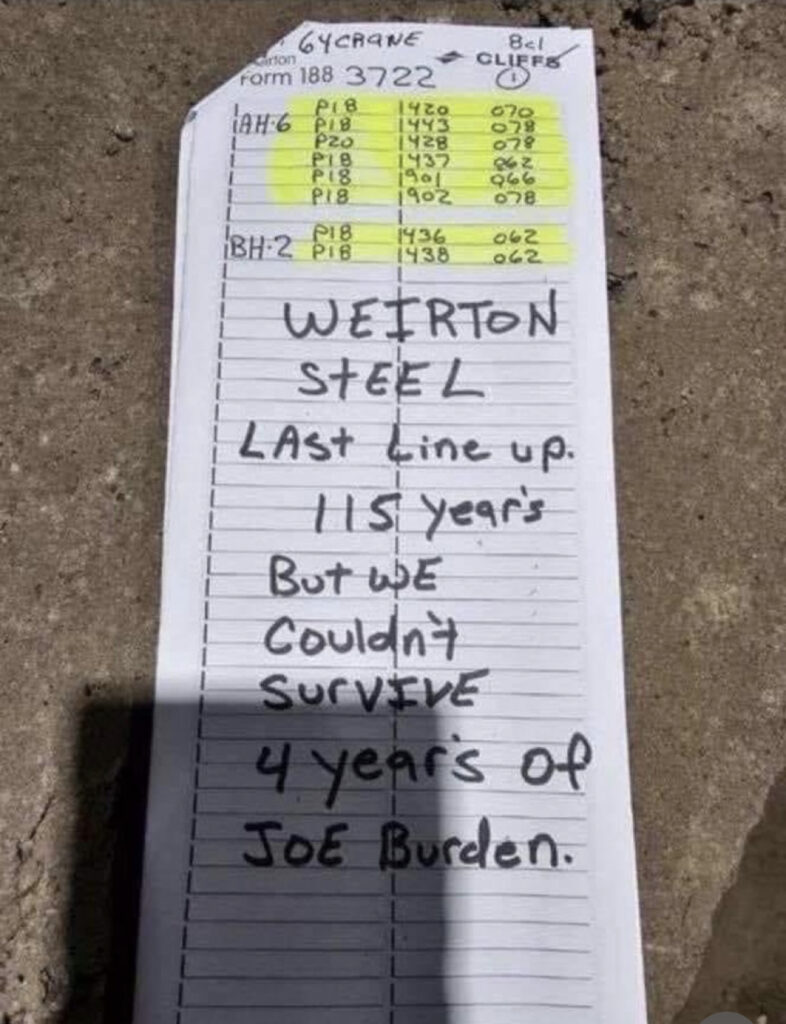 64 CRANE 8cl
CLIFFS
Form 188 3722 1
P18 1420 070
AH-6 P18 1443 078
P20 1428 078
P18 1437 062
P18 1901 066
P18 1902 078
P18 1436 062
BH-2 P18 1438 062
WEIRTON
StEEL
LASt Line up.
115 year's
But WE
Couldn't
SurVIVE
4 year's of
JOE Burden.